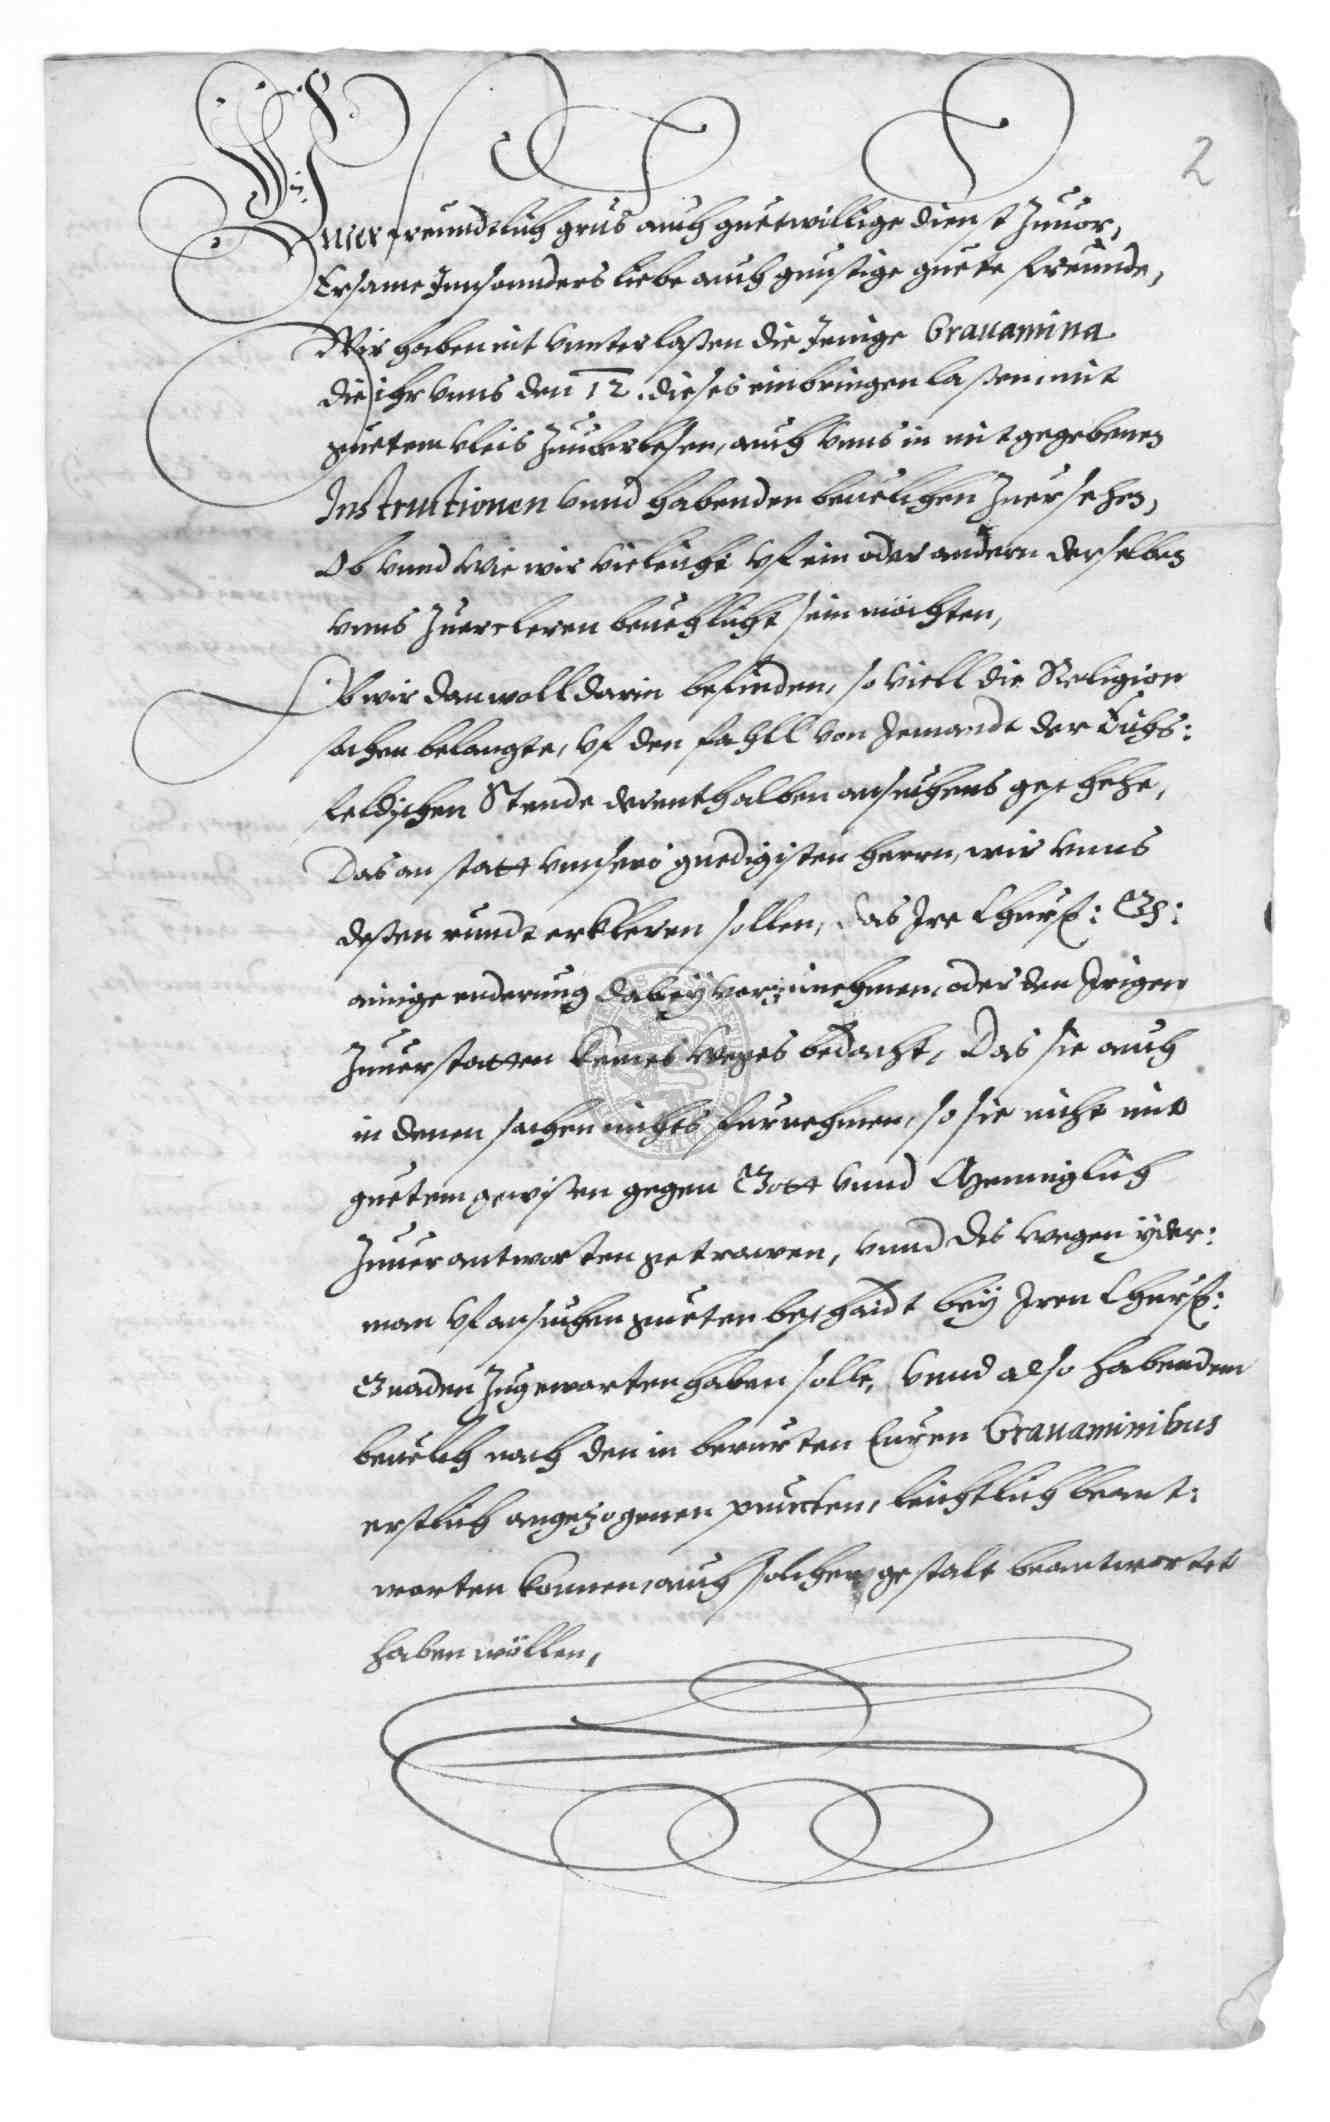 2
Unser freundtlich grus auch guetwillige dienst zuuor,
Ersame Innsonnders liebe auch gunstige guete freunde,
Wir haben nit vnnterlaßen die Jenige Grauamina
die ihr vnns den 12. dieses einbringen laßen, mit
guetem vleis zuuberlesen, auch vnns in mitgegebenen
Instructionen vnnd habenden beuelchen zuersehen,
Ob vnnd wie wir vieleicht vf ein oder andern derselben
vnns zuercleren beuehlicht sein möchten,
Ob wir dan woll darin befinden, so viell die Religion
sachen belangte, vf den fahll von Jemandt der Eichs:
feldischen Stende derenthalben ansuchens geschehe,
Das an statt vnnsers gnedigisten herrn, wir vnns
deßen rundt erkleren sollen, das Ire Churf: G:
ainige enderung dabey vorzunehmen, oder den Irigen
zuuerstatten keines weges bedacht, Das sie auch
in denen sachen nichts furnehmen, so sie nicht mit
guetem gewißen gegen Gott vnnd Menniglich
zuuerantworten getrawen, vnnd des wegen yder:
man vf ansuchen gueten beschaidt bey Iren Churf:
Gnaden zugewarten haben solle, vnnd also habendem
beuelch nach den in berurten Euren Grauaminibus
erstlich angezogenen puncten, leichtlich beant:
worten konnen, auch solcher gestalt beantwortet
haben wöllen,